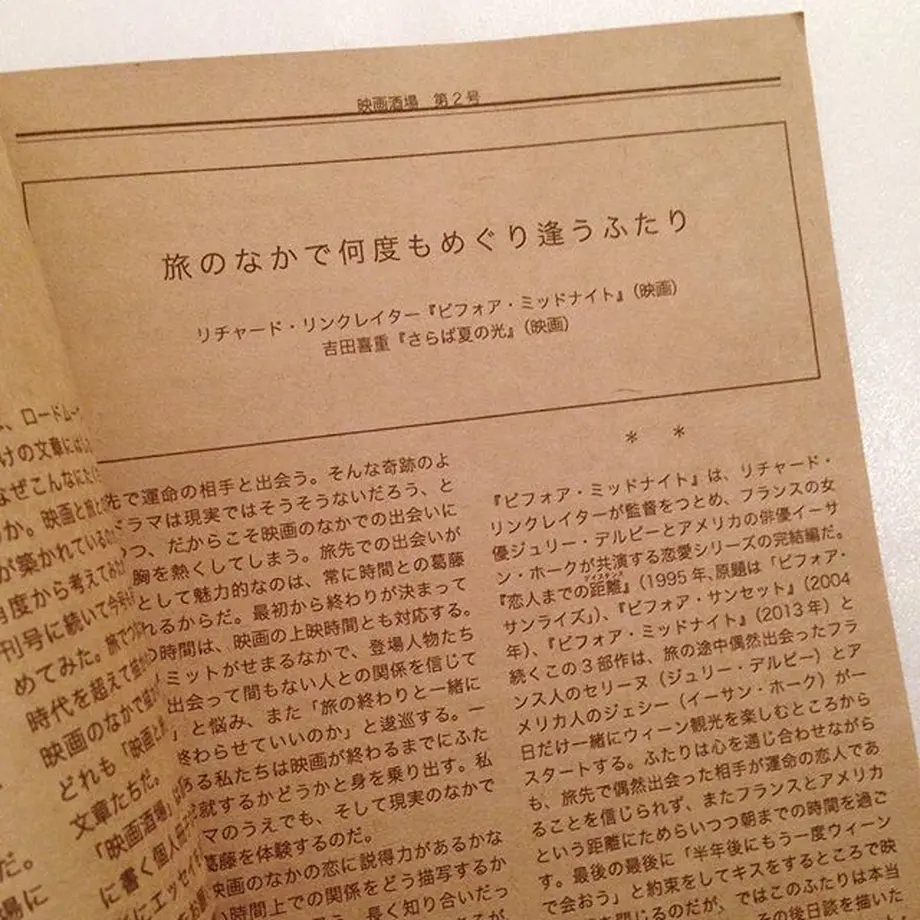 映画酒場　第2号
旅のなかで何度もめぐり逢うふたり
リチャード・リンクレイター『ビフォア・ミッドナイト』(映画)
吉田喜重『さらば夏の光』(映画)
、ロードム
けの文章には
なぜこんなにた
か。映画と旅と
が築かれている
角度から考えてみ
刊号に続いて今号
めてみた。旅で
時代を超えて
映画のなかで
どれも「映画と
文章たちだ。
「映画酒場」は
に書く個人
にエッセイ
だ。
場に
先で運命の相手と出会う。そんな奇跡のよ
ラマは現実ではそうそうないだろう、と
つ、だからこそ映画のなかでの出会いに
胸を熱くしてしまう。旅先での出会いが
として魅力的なのは、常に時間との葛藤
れるからだ。最初から終わりが決まって
の時間は、映画の上映時間とも対応する。
ミットがせまるなかで、登場人物たち
出会って間もない人との関係を信じて
」と悩み、また「旅の終わりと一緒に
終わらせていいのか」と逡巡する。一
ある私たちは映画が終わるまでにふた
就するかどうかと身を乗り出す。私
マのうえでも、そして現実のなかで
葛藤を体験するのだ。
映画のなかの恋に説得力があるかな
い時間上での関係をどう描写するか
う。長く知り合いだっ
＊　＊
『ビフォア・ミッドナイト』は、リチャード・
リンクレイターが監督をつとめ、フランスの女
優ジュリー・デルピーとアメリカの俳優イーサ
ン・ホークが共演する恋愛シリーズの完結編だ。
『恋人までの距離』(1995年、原題は「ビフォア・
サンライズ」)、『ビフォア・サンセット』(2004
年)、『ビフォア・ミッドナイト』(2013年)と
続くこの3部作は、旅の途中偶然出会ったフラ
ンス人のセリーヌ(ジュリー・デルピー)とア
メリカ人のジェシー(イーサン・ホーク)が一
日だけ一緒にウィーン観光を楽しむところから
スタートする。ふたりは心を通じ合わせながら
も、旅先で偶然出会った相手が運命の恋人であ
ることを信じられず、またフランスとアメリカ
という距離にためらいつつ朝までの時間を過ご
す。最後の最後に「半年後にもう一度ウィーン
で会おう」と約束をしてキスをするところで映
を閉じるのだが、ではこのふたりは本当
の後日談を描いた